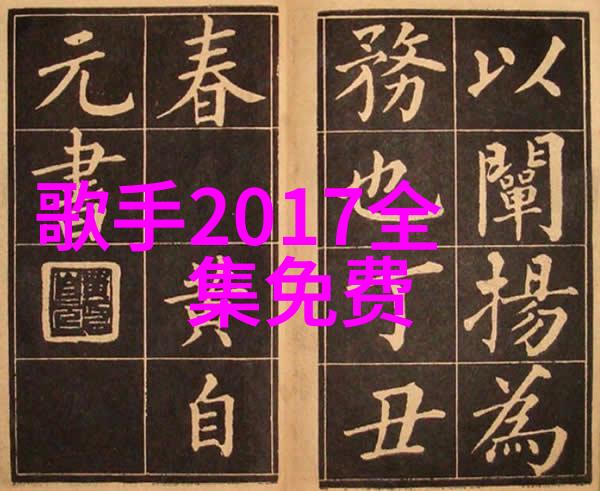 以闡揚為
務也丁丑
春黃自
元書
歌手2017全
集免费